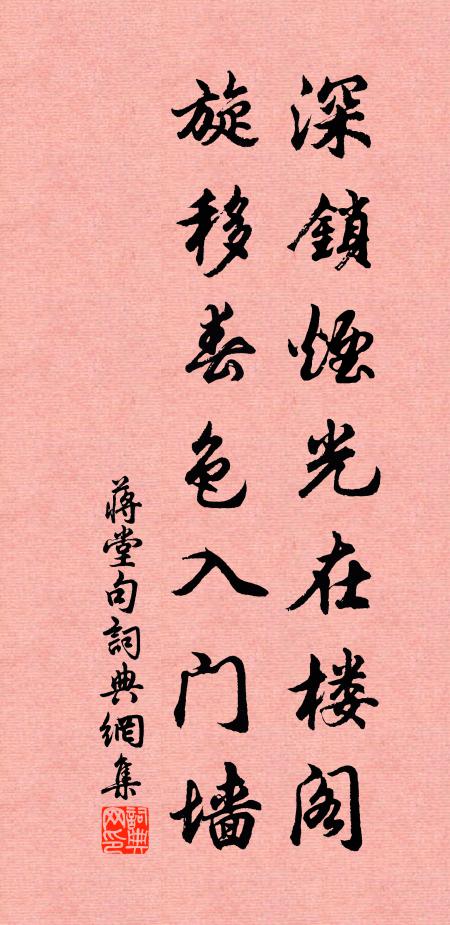 深鎖煙光在楼阁
旋移春色入门墙
蔣堂句詞典網集
詞典网印